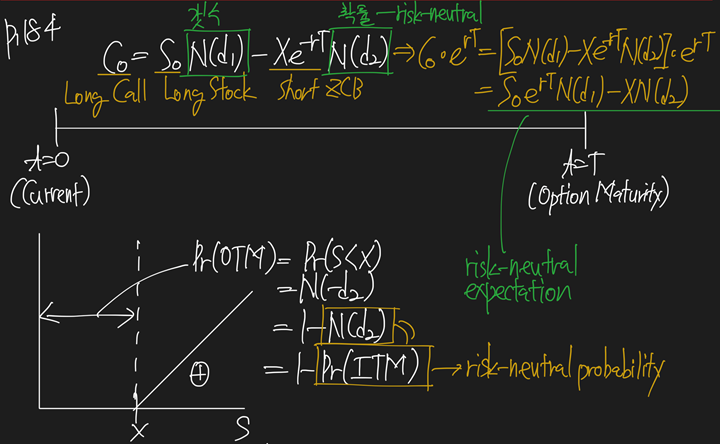 갯수
확률-risk-neutral
p.184
C₀ = S₀ N(d₁) - Xe⁻ʳᵀ N(d₂) ⇒ C₀·eʳᵀ = [S₀N(d₁)-Xe⁻ʳᵀN(d₂)]·eʳᵀ
Long Call Long Stock short ZCB
= S₀eʳᵀN(d₁) - XN(d₂)
t=0
(Current)
t=T
(Option Maturity)
risk-neutral
expectation
Pr(OTM) = Pr(S<X)
= N(-d₂)
= 1-N(d₂)
= 1-Pr(ITM) → risk-neutral probability
⊕
X
S